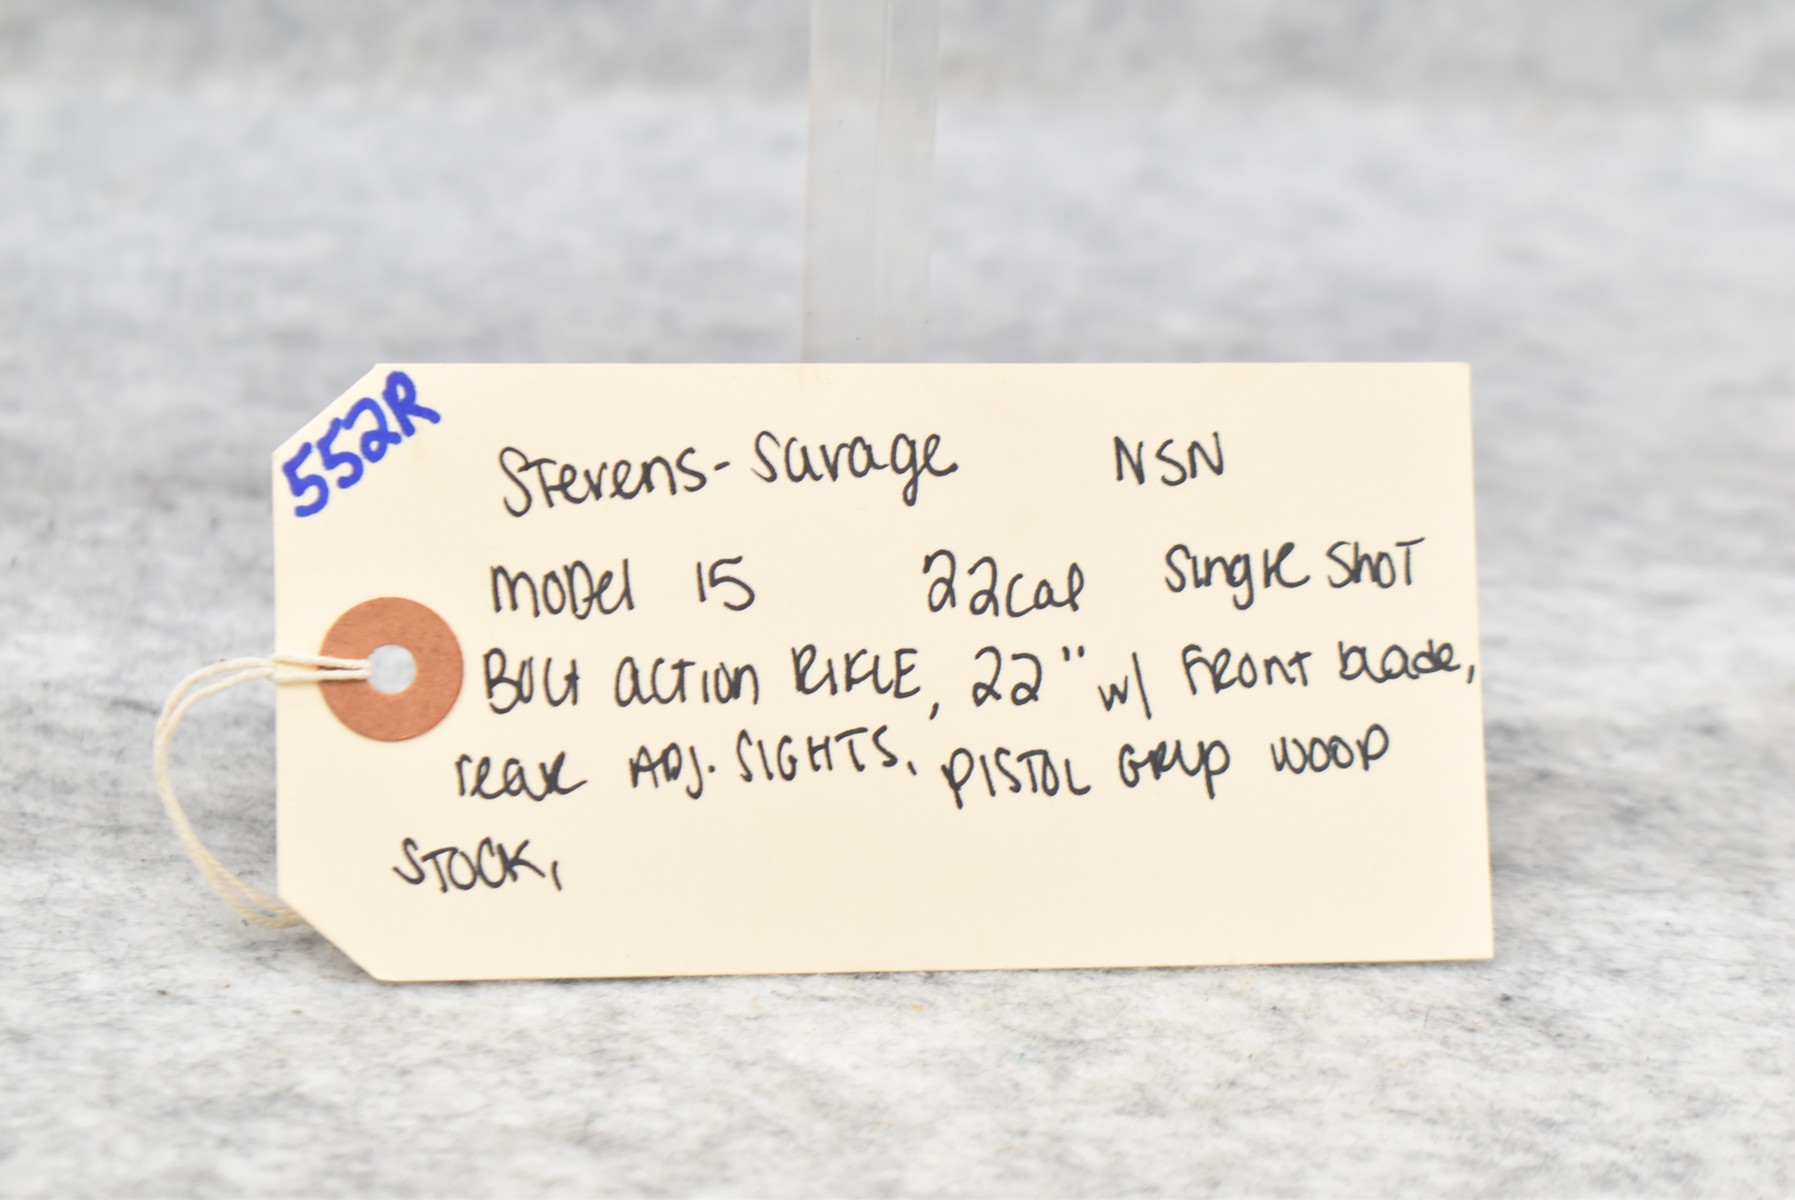 552R
Stevens-Savage NSN
MODel 15 22cal Single SHOT
BOLT ACTION RIFLE, 22" w/ FRONT blade,
rear ADJ. SIGHTS, PISTOL GRIP WOOD
STOCK,